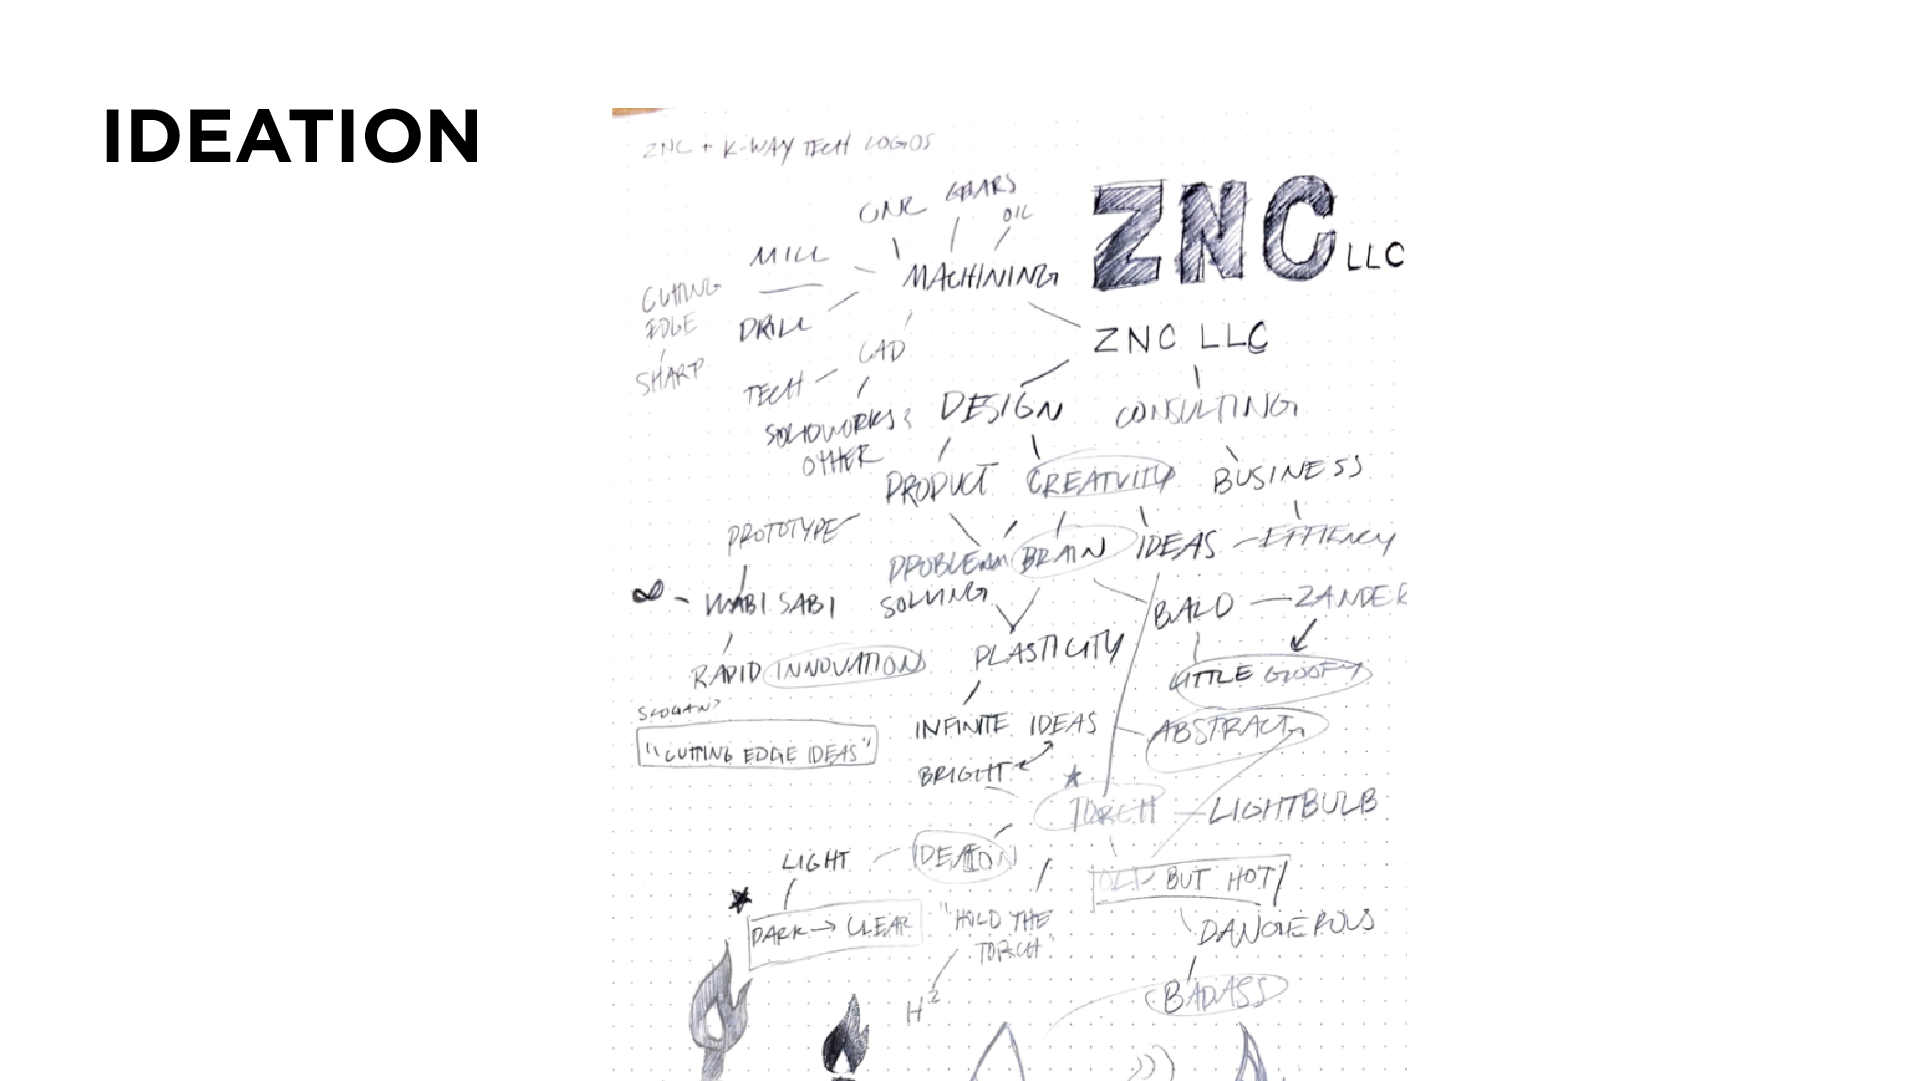 IDEATION
ZNC + K-WAY TECH LOGOS
GEARS
OIL
ZNC LLC
MILL
MACHINING
CUTTING
EDGE
SHARP
DRILL
CAD
ZNC LLC
TECH
SOLIDWORKS &
OTHER
DESIGN
CONSULTING
PRODUCT
CREATVITY
BUSINESS
PROTOTYPE
PROBLEM
SOLVING
BRAIN
IDEAS
EFFIENCY
∞ - WABI SABI
BALD
ZANDER
RAPID INNOVATION
PLASTICITY
LITTLE GOOFY
SLOGAN?
"CUTTING EDGE IDEAS"
INFINITE IDEAS
ABSTRACT
BRIGHT
TORCH
LIGHTBULB
LIGHT
IDEATION
BUT HOT
DARK → CLEAR
"HOLD THE
TORCH"
DANGEROUS
H²
BADASS